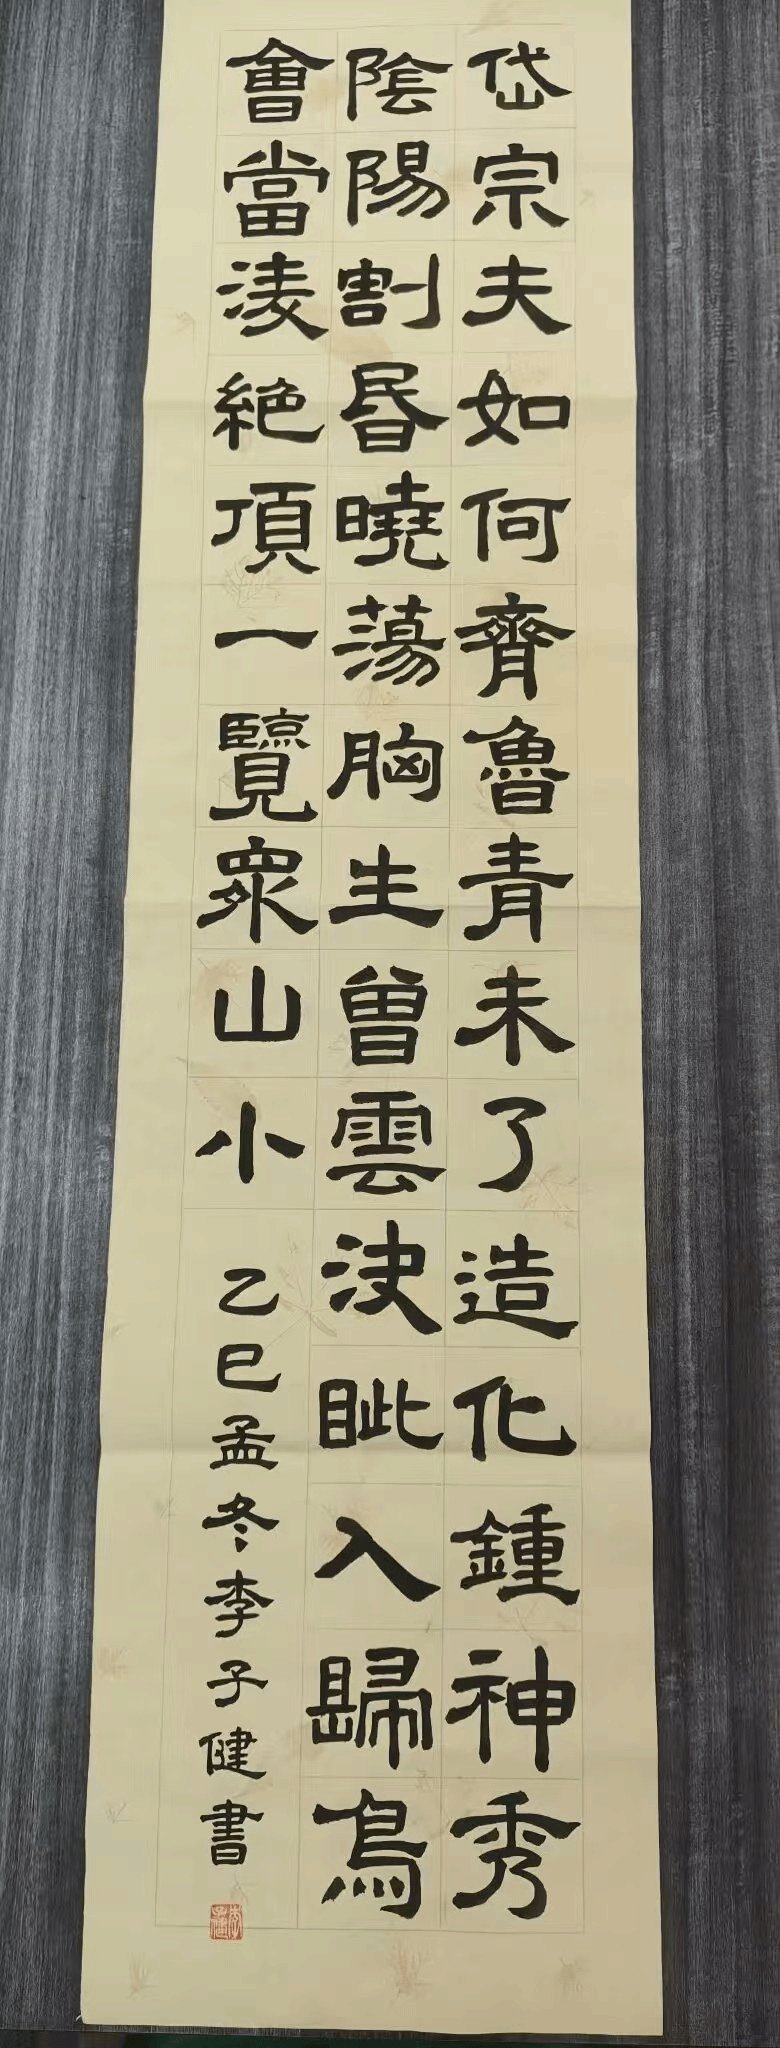 岱宗夫如何齊魯青未了造化鍾神秀
陰陽割昏曉蕩胸生曽雲決眦入歸鳥
會當淩絕頂一覽眾山小
乙巳孟冬李子健書